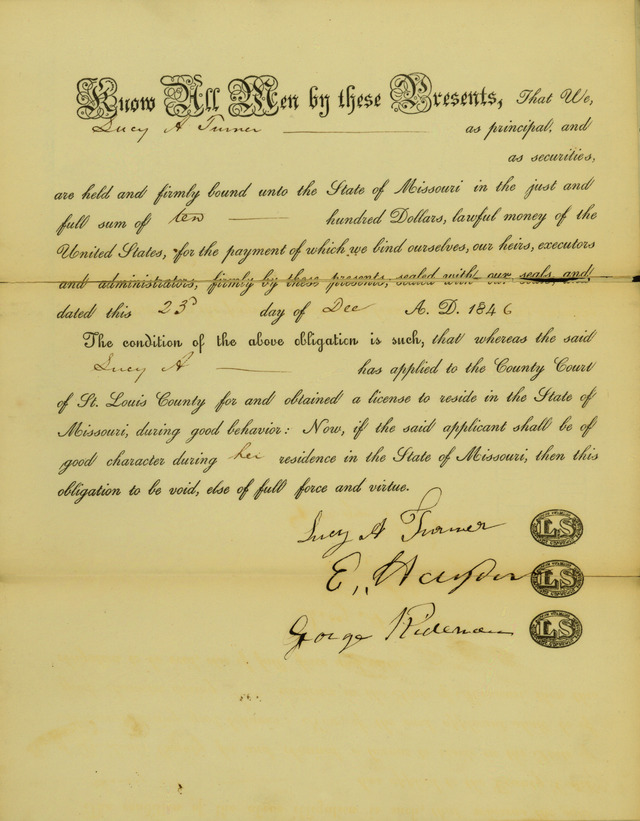 Know All Men by these Presents, That We,
Lucy A Turner as principal, and
as securities,
are held and firmly bound unto the State of Missouri in the just and
full sum of ten hundred Dollars, lawful money of the
United States, for the payment of which we bind ourselves, our heirs, executors
and administrators, firmly by these presents, sealed with our seals, and
dated this 23d day of Dec A. D. 1846
The condition of the above obligation is such, that whereas the said
Lucy A has applied to the County Court
of St. Louis County for and obtained a license to reside in the State of
Missouri, during good behavior: Now, if the said applicant shall be of
good character during her residence in the State of Missouri, then this
obligation to be void, else of full force and virtue.
Lucy A Turner LS
E, LS
George LS